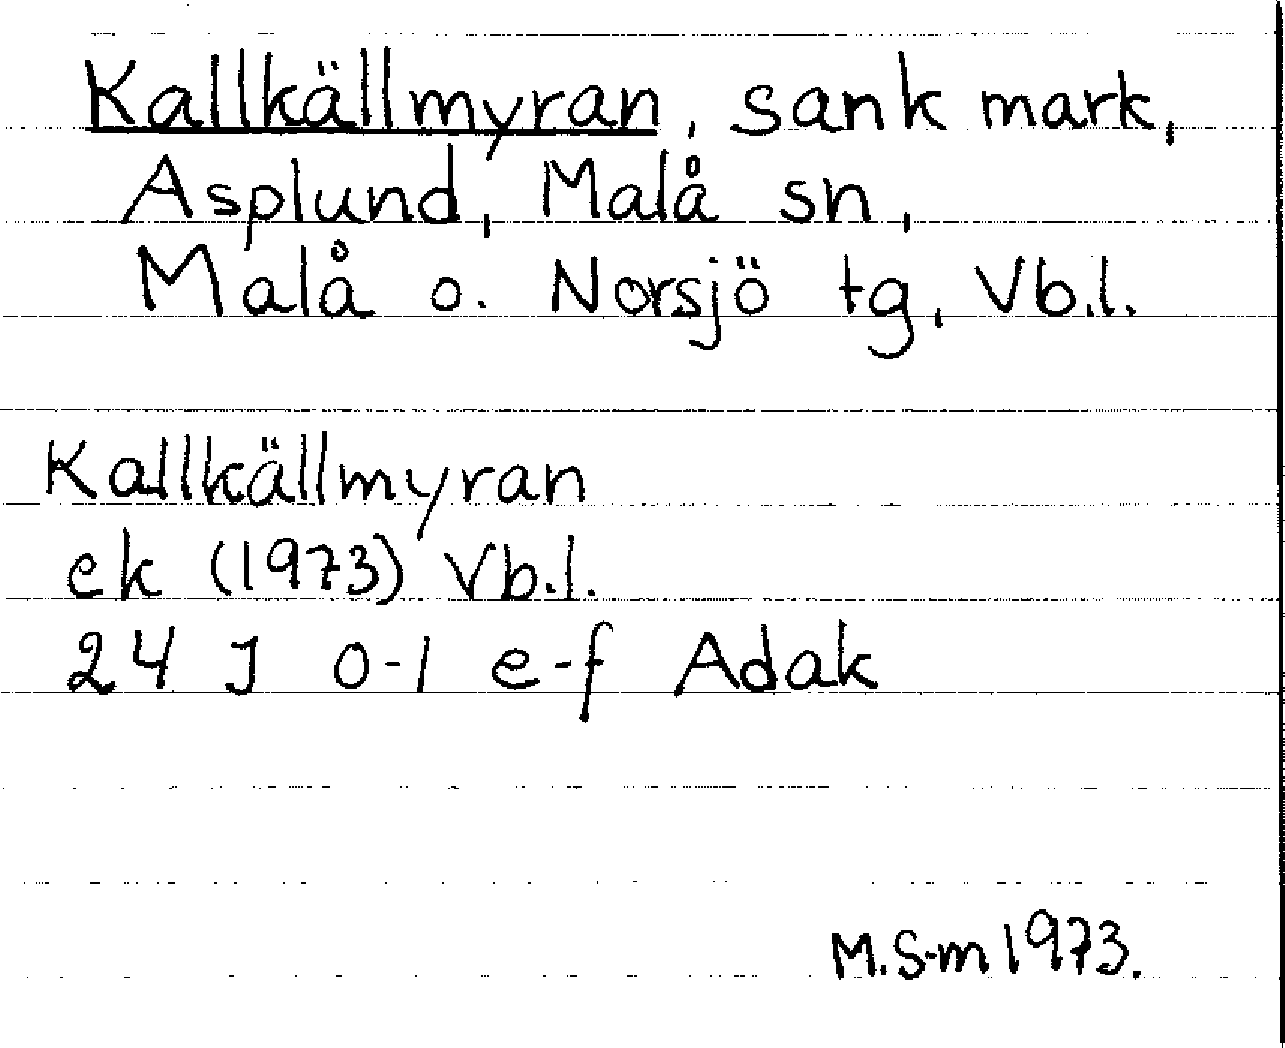 Kallkällmyran, sank mark,
Asplund, Malå sn,
Malå o. Norsjö tg, Vb.l.
Kallkällmyran
ek (1973) Vb.l.
24 J 0-1 e-f Adak
M.S-m 1973.